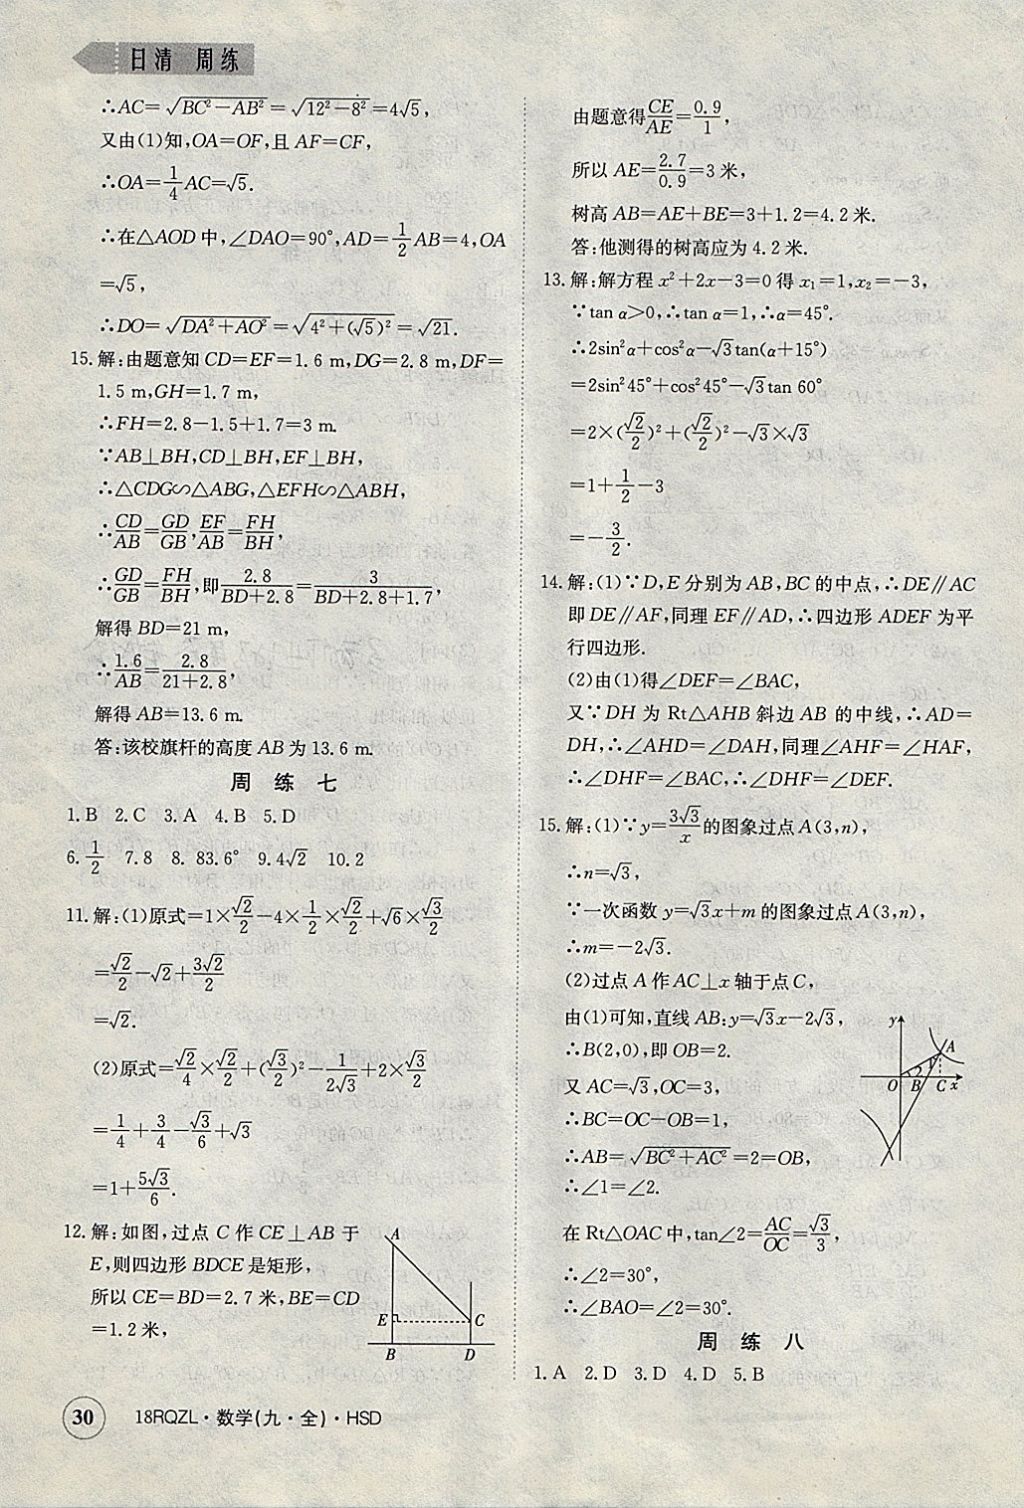 日清 周练
∴AC=√(BC²-AB²)=√(12²-8²)=4√5,
又由(1)知,OA=OF,且 AF=CF,
∴OA=1/4 AC=√5.
∴在△AOD 中,∠DAO=90°,AD=1/2 AB=4,OA
=√5,
∴DO=√(DA²+AO²)=√(4²+(√5)²)=√21.
15.解:由题意知 CD=EF=1.6 m,DG=2.8 m,DF=
1.5 m,GH=1.7 m,
∴FH=2.8-1.5+1.7=3 m.
∵AB⊥BH,CD⊥BH,EF⊥BH,
∴△CDG∽△ABG,△EFH∽△ABH,
∴CD/AB=GD/GB,EF/AB=FH/BH,
∴GD/GB=FH/BH,即2.8/(BD+2.8)=3/(BD+2.8+1.7),
解得 BD=21 m,
∴1.6/AB=2.8/(21+2.8),
解得 AB=13.6 m.
答:该校旗杆的高度 AB 为 13.6 m.
周 练 七
1.B 2.C 3.A 4.B 5.D
6.1/2 7.8 8.83.6° 9.4√2 10.2
11.解:(1)原式=1×√2/2-4×1/2×√2/2+√6×√3/2
=√2/2-√2+3√2/2
=√2.
(2)原式=√2/4×√2/2+(√3/2)²-1/(2√3)+2×√3/2
=1/4+3/4-√3/6+√3
=1+5√3/6.
12.解:如图,过点 C 作 CE⊥AB 于
E,则四边形 BDCE 是矩形,
所以 CE=BD=2.7 米,BE=CD
=1.2 米,
A
E
C
B D
由题意得CE/AE=0.9/1,
所以 AE=2.7/0.9=3 米,
树高 AB=AE+BE=3+1.2=4.2 米.
答:他测得的树高应为 4.2 米.
13.解:解方程 x²+2x-3=0 得 x₁=1,x₂=-3,
∵tan α>0,∴tan α=1,∴α=45°.
∴2sin²α+cos²α-√3tan(α+15°)
=2sin²45°+cos²45°-√3tan 60°
=2×(√2/2)²+(√2/2)²-√3×√3
=1+1/2-3
=-3/2.
14.解:(1)∵D,E 分别为 AB,BC 的中点,∴DE∥AC
即 DE∥AF,同理 EF∥AD,∴四边形 ADEF 为平
行四边形.
(2)由(1)得∠DEF=∠BAC,
又∵DH 为 Rt△AHB 斜边 AB 的中线,∴AD=
DH,∴∠AHD=∠DAH,同理∠AHF=∠HAF,
∴∠DHF=∠BAC,∴∠DHF=∠DEF.
15.解:(1)∵y=3√3/x的图象过点 A(3,n),
∴n=√3,
∵一次函数 y=√3x+m 的图象过点A(3,n),
∴m=-2√3.
(2)过点 A 作 AC⊥x 轴于点 C,
由(1)可知,直线 AB:y=√3x-2√3,
∴B(2,0),即 OB=2.
又 AC=√3,OC=3,
∴BC=OC-OB=1,
∴AB=√(BC²+AC²)=2=OB,
∴∠1=∠2.
在 Rt△OAC 中,tan∠2=AC/OC=√3/3,
∴∠2=30°,
∴∠BAO=∠2=30°.
y
A
1
2
O B C x
周 练 八
1.A 2.D 3.D 4.D 5.B
30 18RQZL·数学(九·全)·HSD